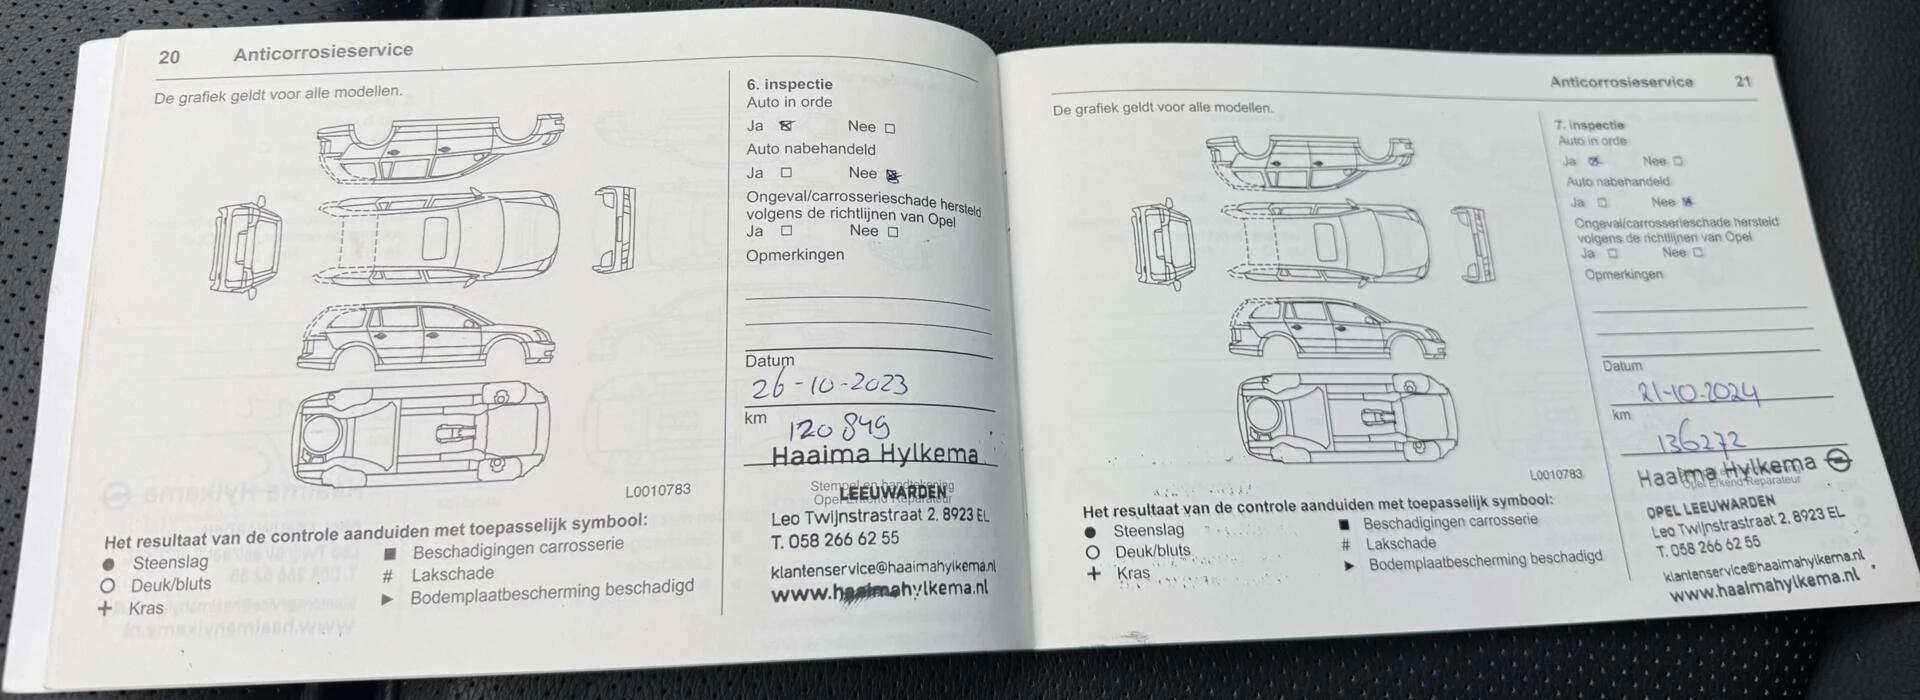 20 Anticorrosieservice
De grafiek geldt voor alle modellen.
L0010783
Het resultaat van de controle aanduiden met toepasselijk symbool:
● Steenslag
○ Deuk/bluts
+ Kras
■ Beschadigingen carrosserie
# Lakschade
► Bodemplaatbescherming beschadigd
6. inspectie
Auto in orde
Ja ☒ Nee ☐
Auto nabehandeld
Ja ☐ Nee ☒
Ongeval/carrosserieschade hersteld
volgens de richtlijnen van Opel
Ja ☐ Nee ☐
Opmerkingen
Datum
26-10-2023
km
120849
Haaima Hylkema
Stempel en handtekening
Opel Erkend Reparateur
LEEUWARDEN
Leo Twijnstrastraat 2, 8923 EL
T. 058 266 62 55
klantenservice@haaimahylkema.nl
www.haaimahylkema.nl
Anticorrosieservice 21
De grafiek geldt voor alle modellen.
L0010783
Het resultaat van de controle aanduiden met toepasselijk symbool:
● Steenslag
○ Deuk/bluts
+ Kras
■ Beschadigingen carrosserie
# Lakschade
► Bodemplaatbescherming beschadigd
7. inspectie
Auto in orde
Ja ☒ Nee ☐
Auto nabehandeld
Ja ☐ Nee ☒
Ongeval/carrosserieschade hersteld
volgens de richtlijnen van Opel
Ja ☐ Nee ☐
Opmerkingen
Datum
21-10-2024
km
136272
Haaima Hylkema
Opel Erkend Reparateur
OPEL LEEUWARDEN
Leo Twijnstrastraat 2, 8923 EL
T. 058 266 62 55
klantenservice@haaimahylkema.nl
www.haaimahylkema.nl